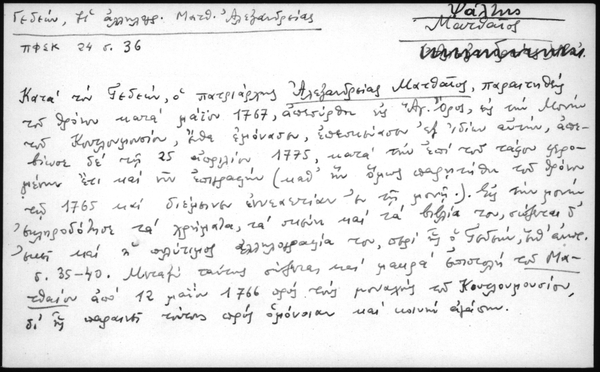 Γεδεών, Ἡ ἀλληλογρ. Ματθ. Ἀλεξανδρείας
Ψάλτης
Ματθαῖος
ΠΦΕΚ 24 σ. 36
Κατὰ τὸν Γεδεών, ὁ πατριάρχης Ἀλεξανδρείας Ματθαῖος, παραιτηθεὶς
τοῦ θρόνου κατὰ μάϊον 1767, ἀπεσύρθη εἰς Ἅγ. Ὄρος, εἰς τὴν Μονὴν
τοῦ Κουτλουμουσίου, ἔνθα ἐμόνασεν, ἐπεσκεύασεν ἐξ ἰδίων αὐτήν, ἀπε-
βίωσε δὲ τῇ 25 ἀπριλίου 1775, κατὰ τὴν ἐπὶ τοῦ τάφου σῳζο-
μένην ἔτι καὶ νῦν ἐπιγραφὴν (καθ' ἣν ὅμως παρῃτήθη τοῦ θρόνου
τῷ 1765 καὶ διέμεινεν ἐννεαετίαν ἐν τῇ μονῇ.). Εἰς τὴν μονὴν
ἐκληροδότησε τὰ χρήματα, τὰ σκεύη καὶ τὰ βιβλία του, σῴζεται δ'
ἐκεῖ καὶ ἡ πολύτιμος ἀλληλογραφία του, περὶ ἧς ὁ Γεδεών, ἔνθ' ἀνωτ.
σ. 35-40. Μεταξὺ ταύτης σῴζεται καὶ μακρὰ ἐπιστολὴ τοῦ Ματ-
θαίου ἀπὸ 12 μαΐου 1766 πρὸς τοὺς μοναχοὺς τοῦ Κουτλουμουσίου,
δι' ἧς παραινεῖ τούτους πρὸς ὁμόνοιαν καὶ κοινὴν ἀγάπην.